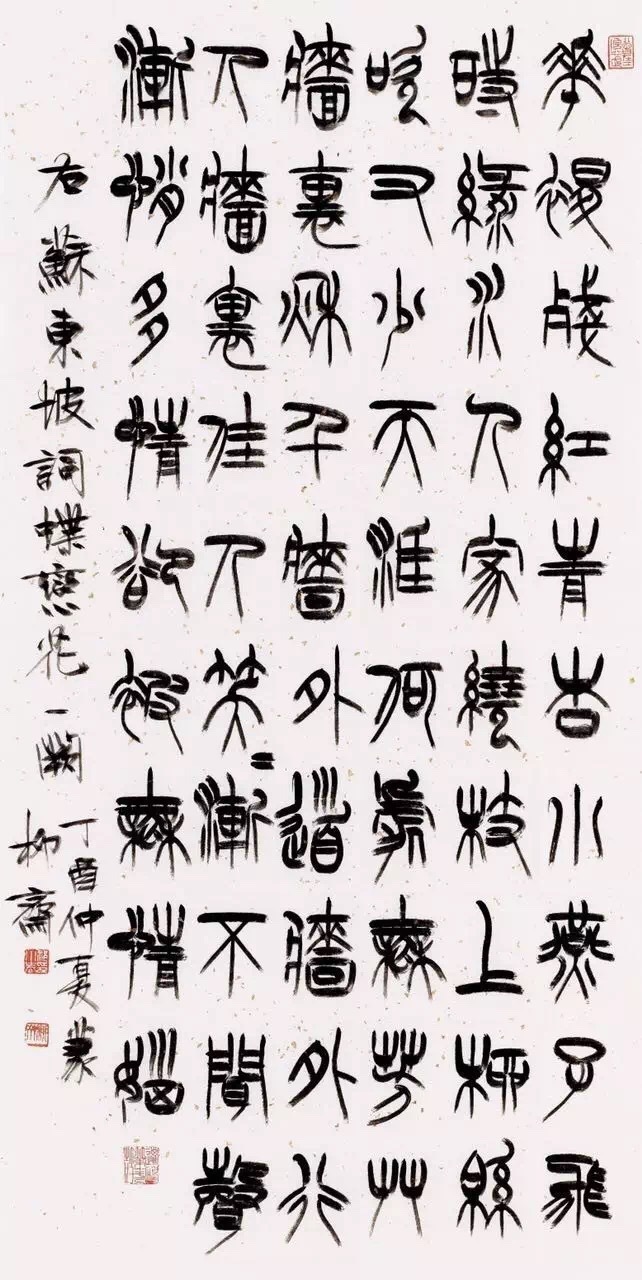 華褪殘紅青杏小燕子飛
時綠水人家繞枝上柳緜
吹又少天涯何處無芳艸
牆裏秌千牆外道牆外行
人牆裏佳人笑=漸不聞聲
漸悄多情卻被無情惱
右蘇東坡詞蝶戀花一闋
丁酉仲夏篆
柳齋